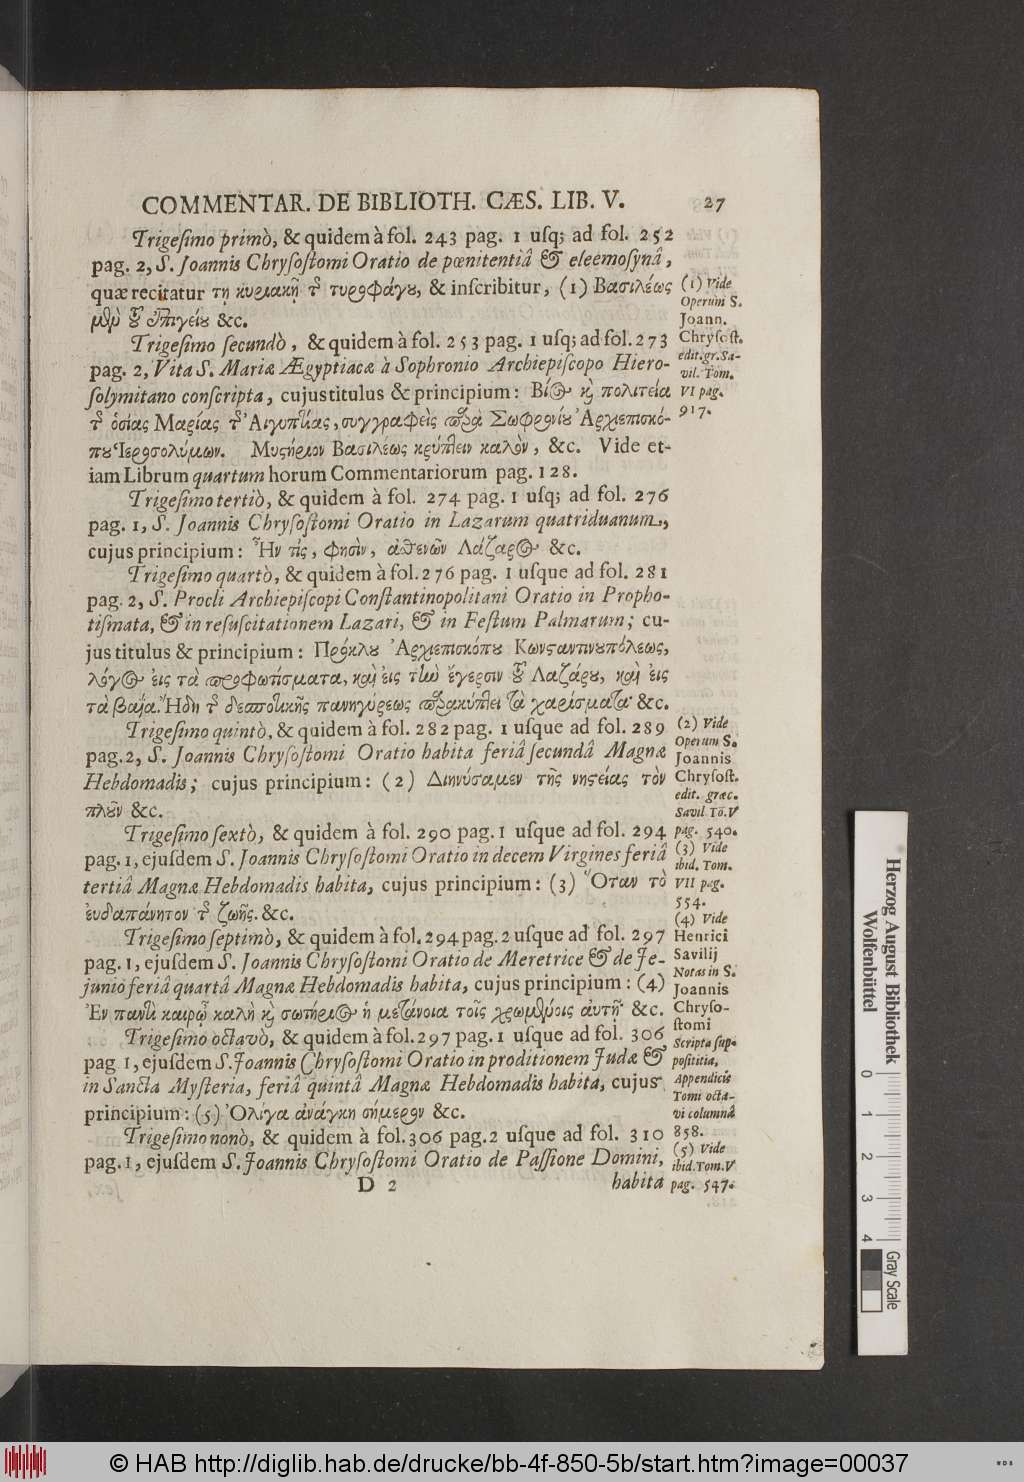 COMMENTAR. DE BIBLIOTH. CÆS. LIB. V. 27
Trigeſimo primò, & quidem à fol. 243 pag. 1 uſq; ad fol. 252
pag. 2, S. Joannis Chryſoſtomi Oratio de pœnitentiâ & eleemoſynâ,
quæ recitatur τῃ κυριακῇ τῆς τυροφάγου, & inſcribitur, (1) Βασιλέως
μὲν ἐπιγείου &c.
Trigeſimo ſecundò, & quidem à fol. 253 pag. 1 uſq; ad fol. 273
pag. 2, Vita S. Mariæ Ægyptiacæ à Sophronio Archiepiſcopo Hiero-
ſolymitano conſcripta, cujus titulus & principium: Βίος καὶ πολιτεία
τῆς ὁσίας Μαρίας τῆς Ἀιγυπτίας, συγγραφεὶς παρὰ Σωφρονίου Ἀρχιεπισκό-
που Ἱεροσολύμων. Μυστήριον Βασιλέως κρύπτειν καλὸν, &c. Vide et-
iam Librum quartum horum Commentariorum pag. 128.
Trigeſimo tertiò, & quidem à fol. 274 pag. 1 uſq; ad fol. 276
pag. 1, S. Joannis Chryſoſtomi Oratio in Lazarum quatriduanum,
cujus principium: Ἦν τίς, φησὶν, ἀσθενῶν Λάζαρος &c.
Trigeſimo quartò, & quidem à fol. 276 pag. 1 uſque ad fol. 281
pag. 2, S. Procli Archiepiſcopi Conſtantinopolitani Oratio in Propho-
tiſmata, & in reſuſcitationem Lazari, & in Feſtum Palmarum; cu-
jus titulus & principium: Πρόκλου Ἀρχιεπισκόπου Κωνσταντινουπόλεως,
λόγος ἐις τὰ προφωτίσματα, καὶ ἐις τὴν ἔγερσιν τοῦ Λαζάρου, καὶ ἐις
τὰ βαΐα. Ἤδη τῆς δεσποτικῆς πανηγύρεως παρακύπτει τὰ χαρίσματα &c.
Trigeſimo quintò, & quidem à fol. 282 pag. 1 uſque ad fol. 289
pag. 2, S. Joannis Chryſoſtomi Oratio habita feriâ ſecundâ Magnæ
Hebdomadis; cujus principium: (2) Διηνύσαμεν τῆς νηστείας τὸν
πλοῦν &c.
Trigeſimo ſextò, & quidem à fol. 290 pag. 1 uſque ad fol. 294
pag. 1, ejuſdem S. Joannis Chryſoſtomi Oratio in decem Virgines feriâ
tertiâ Magnæ Hebdomadis habita, cujus principium: (3) Ὅταν τὸ
ἐυδαπάνητον τῆς ζωῆς. &c.
Trigeſimo ſeptimò, & quidem à fol. 294 pag. 2 uſque ad fol. 297
pag. 1, ejuſdem S. Joannis Chryſoſtomi Oratio de Meretrice & de Je-
junio feriâ quartâ Magnæ Hebdomadis habita, cujus principium: (4)
Ἐν παντὶ καιρῷ καλὴ καὶ σωτήριος ἡ μετάνοια τοῖς χρωμένοις ἀυτῇ &c.
Trigeſimo octavò, & quidem à fol. 297 pag. 1 uſque ad fol. 306
pag 1, ejuſdem S. Joannis Chryſoſtomi Oratio in proditionem Judæ &
in Sancta Myſteria, feriâ quintâ Magnæ Hebdomadis habita, cujus
principium: (5) Ὀλίγα ἀνάγκη σήμερον &c.
Trigeſimo nonò, & quidem à fol. 306 pag. 2 uſque ad fol. 310
pag. 1, ejuſdem S. Joannis Chryſoſtomi Oratio de Paſſione Domini,
D 2 habita
(1) Vide
Operum S.
Joann.
Chryſoſt.
edit. gr. Sa-
vil. Tom.
VI pag.
917.
(2) Vide
Operum S.
Joannis
Chryſoſt.
edit. græc.
Savil. Tō. V
pag. 540.
(3) Vide
ibid. Tom.
VII pag.
554.
(4) Vide
Henrici
Savilij
Notas in S.
Joannis
Chryſo-
ſtomi
Scripta ſup-
poſititia,
Appendicis
Tomi octa-
vi columnâ
858.
(5) Vide
ibid. Tom. V
pag. 547.
Herzog August Bibliothek
Wolfenbüttel
0 1 2 3 4
Gray Scale
© HAB http://diglib.hab.de/drucke/bb-4f-850-5b/start.htm?image=00037